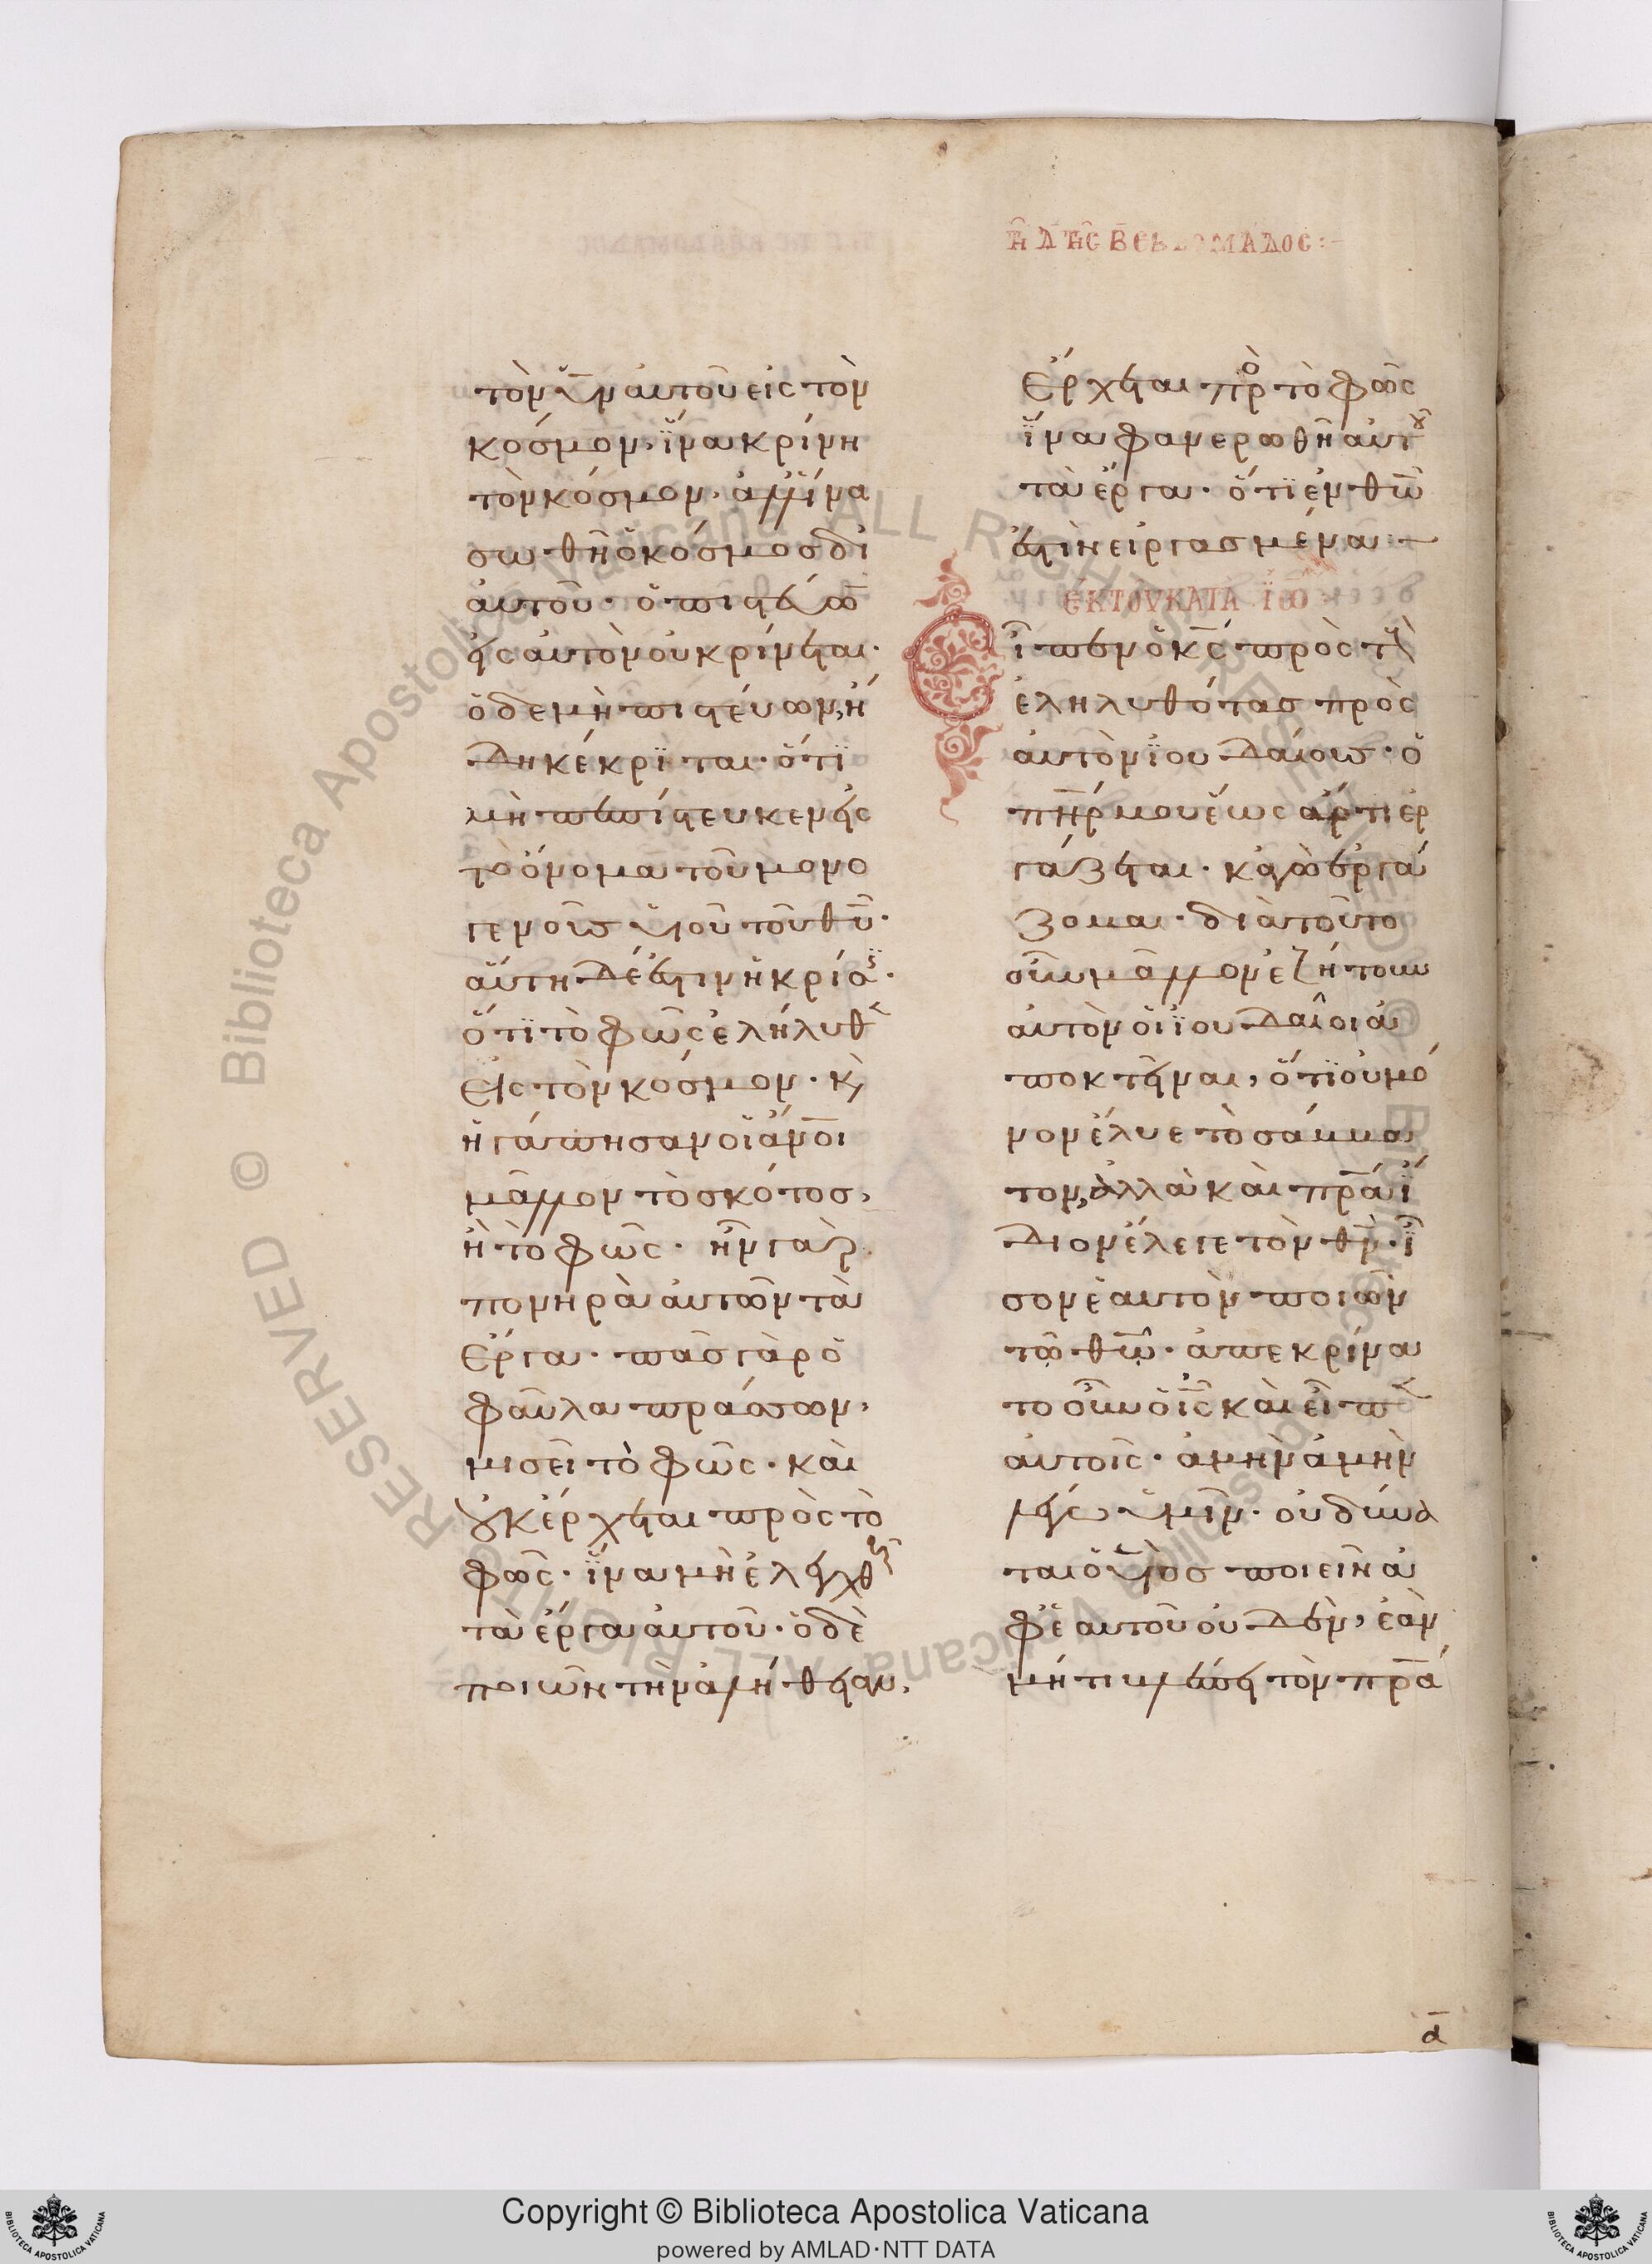 τῆ δ τῆς β ἑβδομάδος:-
τὸν ὑν αὐτοῦ εἰς τὸν
κόσμον, ἵνα κρίνη
τὸν κόσμον, ἀλλ' ἵνα
σωθῆ ὁ κόσμος δι
αὐτοῦ· ὁ πιστεύων
εἰς αὐτὸν οὐ κρίνεται·
ὁ δὲ μὴ πιστεύων, ἤ
δη κέκριται· ὅτι
μὴ πεπίστευκεν εἰς
τὸ ὄνομα τοῦ μονο
γενοῦς υἱοῦ τοῦ θυ·
αὕτη δέ ἐστιν ἡ κρίσις·
ὅτι τὸ φῶς ἐλήλυθεν
εἰς τὸν κόσμον· κ
ἠγάπησαν οἱ ἀνοι
μᾶλλον τὸ σκότος,
ἢ τὸ φῶς· ἦν γὰρ
πονηρὰ αὐτῶν τὰ
ἔργα· πᾶς γὰρ ὁ
φαῦλα πράσσων,
μισεῖ τὸ φῶς· καὶ
οὐκ ἔρχεται πρὸς τὸ
φῶς· ἵνα μὴ ἐλεγχθῆ
τὰ ἔργα αὐτοῦ· ὁ δὲ
ποιῶν τὴν ἀλήθειαν,
ἔρχεται πρὸ τὸ φῶς
ἵνα φανερωθῆ αὐτοῦ
τὰ ἔργα· ὅτι ἐν θω
ἐστὶν εἰργασμένα:-
ἐκ τοῦ κατὰ ἰω
Εἶπεν ὁ κς πρὸς τοὺς
ἐληλυθότας πρὸς
αὐτὸν ἰουδαίους· ὁ
πηρ μου ἕως ἄρτι ἐρ
γάζεται· κἀγὼ ἐργά
ζομαι· διὰ τοῦτο
οὖν μᾶλλον ἐζήτουν
αὐτὸν οἱ ἰουδαῖοι ἀ
ποκτεῖναι, ὅτι οὐ μό
νον ἔλυε τὸ σάββα
τον, ἀλλὰ καὶ πρα ἴ
διον ἔλεγε τὸν θν· ἶ
σον ἑαυτὸν ποιῶν
τῷ θω· ἀπεκρίνα
το οὖν ὁ ις καὶ εἶπεν
αὐτοῖς· ἀμὴν ἀμὴν
λέγω ὑμῖν· οὐ δύνα
ται ὁ υἱὸς ποιεῖν ἀ
φ' ἑαυτοῦ οὐδὲν, ἐὰν
μή τι βλέπη τὸν πρα
α
Copyright © Biblioteca Apostolica Vaticana
powered by AMLAD·NTT DATA